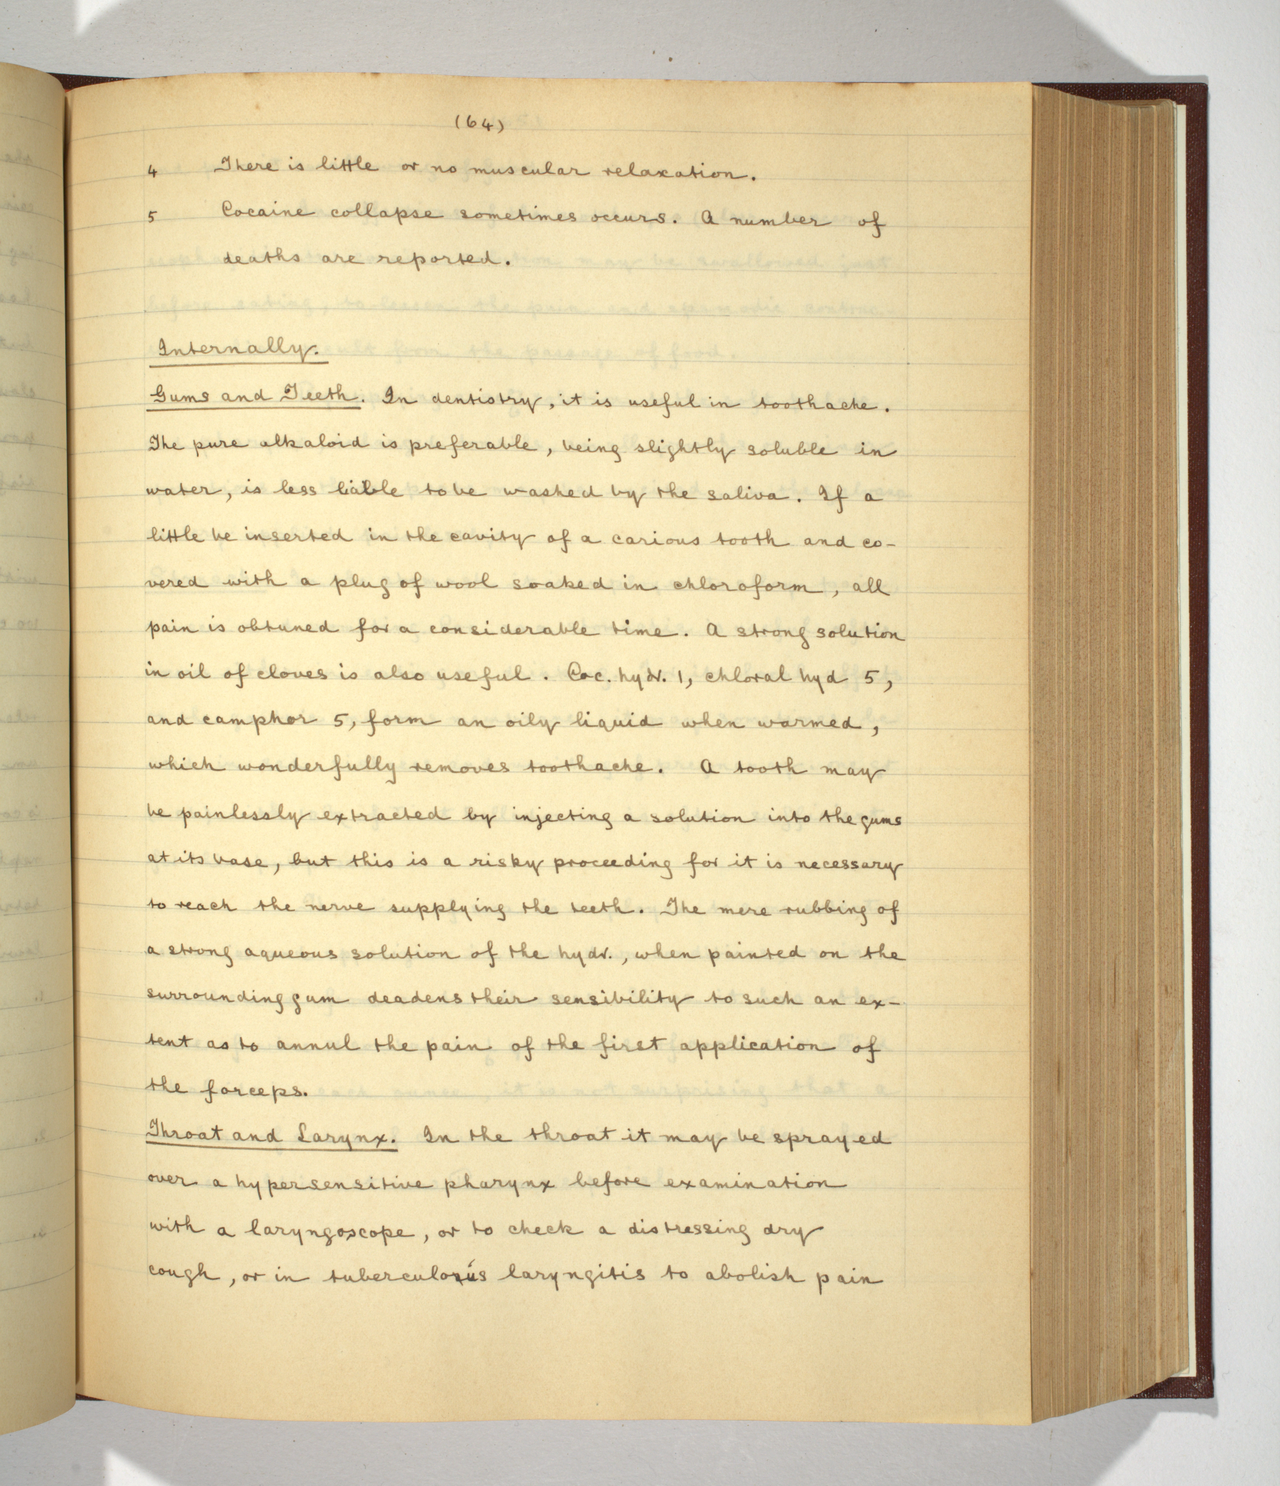 (64)
4 There is little or no muscular relaxation.
5 Cocaine collapse sometimes occurs. A number of
deaths are reported.
Internally.
Gums and Teeth. In dentistry, it is useful in toothache.
The pure alkaloid is preferable, being slightly soluble in
water, is less liable to be washed by the saliva. If a
little be inserted in the cavity of a carious tooth and co-
vered with a plug of wool soaked in chloroform, all
pain is obtuned for a considerable time. A strong solution
in oil of cloves is also useful. Coc. hydr. 1, chloral hyd 5,
and camphor 5, form an oily liquid when warmed,
which wonderfully removes toothache. A tooth may
be painlessly extracted by injecting a solution into the gums
at its base, but this is a risky proceeding for it is necessary
to reach the nerve supplying the teeth. The mere rubbing of
a strong aqueous solution of the hydr., when painted on the
surrounding gum deadens their sensibility to such an ex-
tent as to annul the pain of the first application of
the forceps.
Throat and Larynx. In the throat it may be sprayed
over a hypersensitive pharynx before examination
with a laryngoscope, or to check a distressing dry
cough, or in tuberculous laryngitis to abolish pain